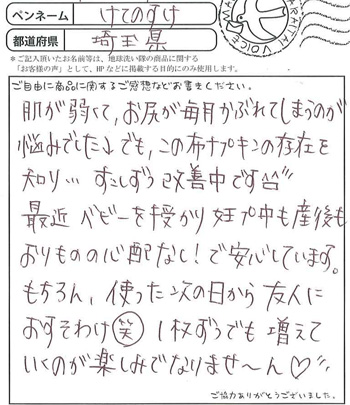 ペンネーム けてのすけ
都道府県 埼玉県
＊ご記入頂いたお名前等は、地球洗い隊の商品に関する
「お客様の声」として、HPなどに掲載する目的にのみ使用します。
ご自由に商品に関するご感想などお書きください。
肌が弱くて、お尻が毎月かぶれてしまうのが
悩みでした↓でも、この布ナプキンの存在を
知り… すこしずつ改善中です^^"
最近 ベビーを授かり 妊プ中も産後も
おりものの心配なし！で安心しています。
もちろん、使った次の日から友人に
おすそわけ(笑) 1枚ずつでも増えて
いくのが楽しみでなりませ〜ん♡"
ご協力ありがとうございました。